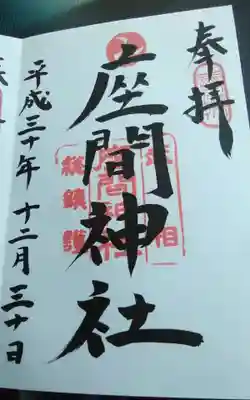 奉拝
座間神社
平成三十年十二月三十日
総鎮護
座間神社